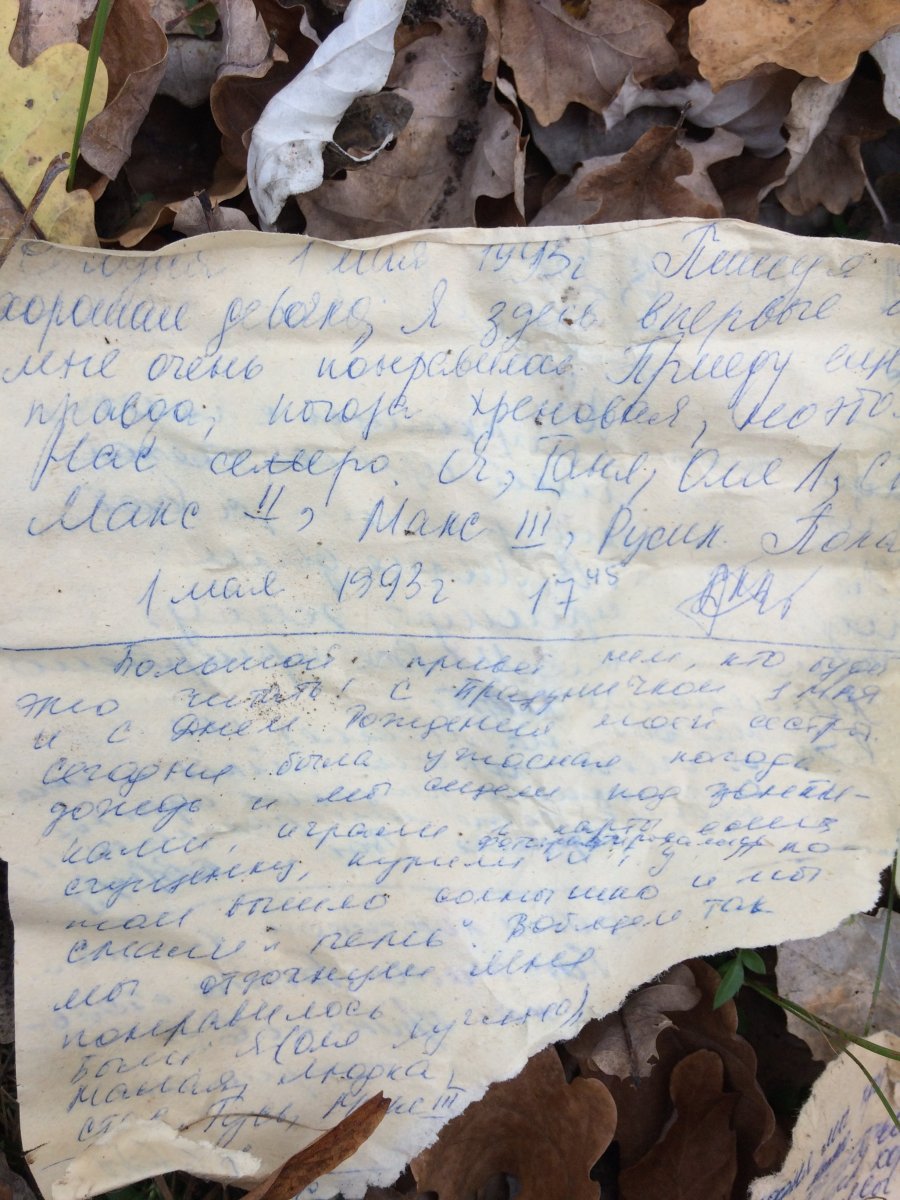 Сегодня 1 мая 1993г Пишу я
хорошая девочка, Я здесь впервые и
мне очень понравилось Приеду ещё
правда, погода хреновая, но это
Нас семеро Я, Таня, Оля Л,
Макс II, Макс III, Русик. Пока
1 мая 1993г 17 45
Большой привет тем, кто будет
это читать! С праздничком 1 мая
и с Днём Рождения моей сестры
Сегодня была ужасная погода
дождь и мы сидели под зонти-
ками играли в карты
сгущенку, курили по-
том вышло солнышко и мы
стали "петь". Вобщем так
мы отдохнули Мне
понравилось
Были Я (Оля
Малая, Людка,
Макс III